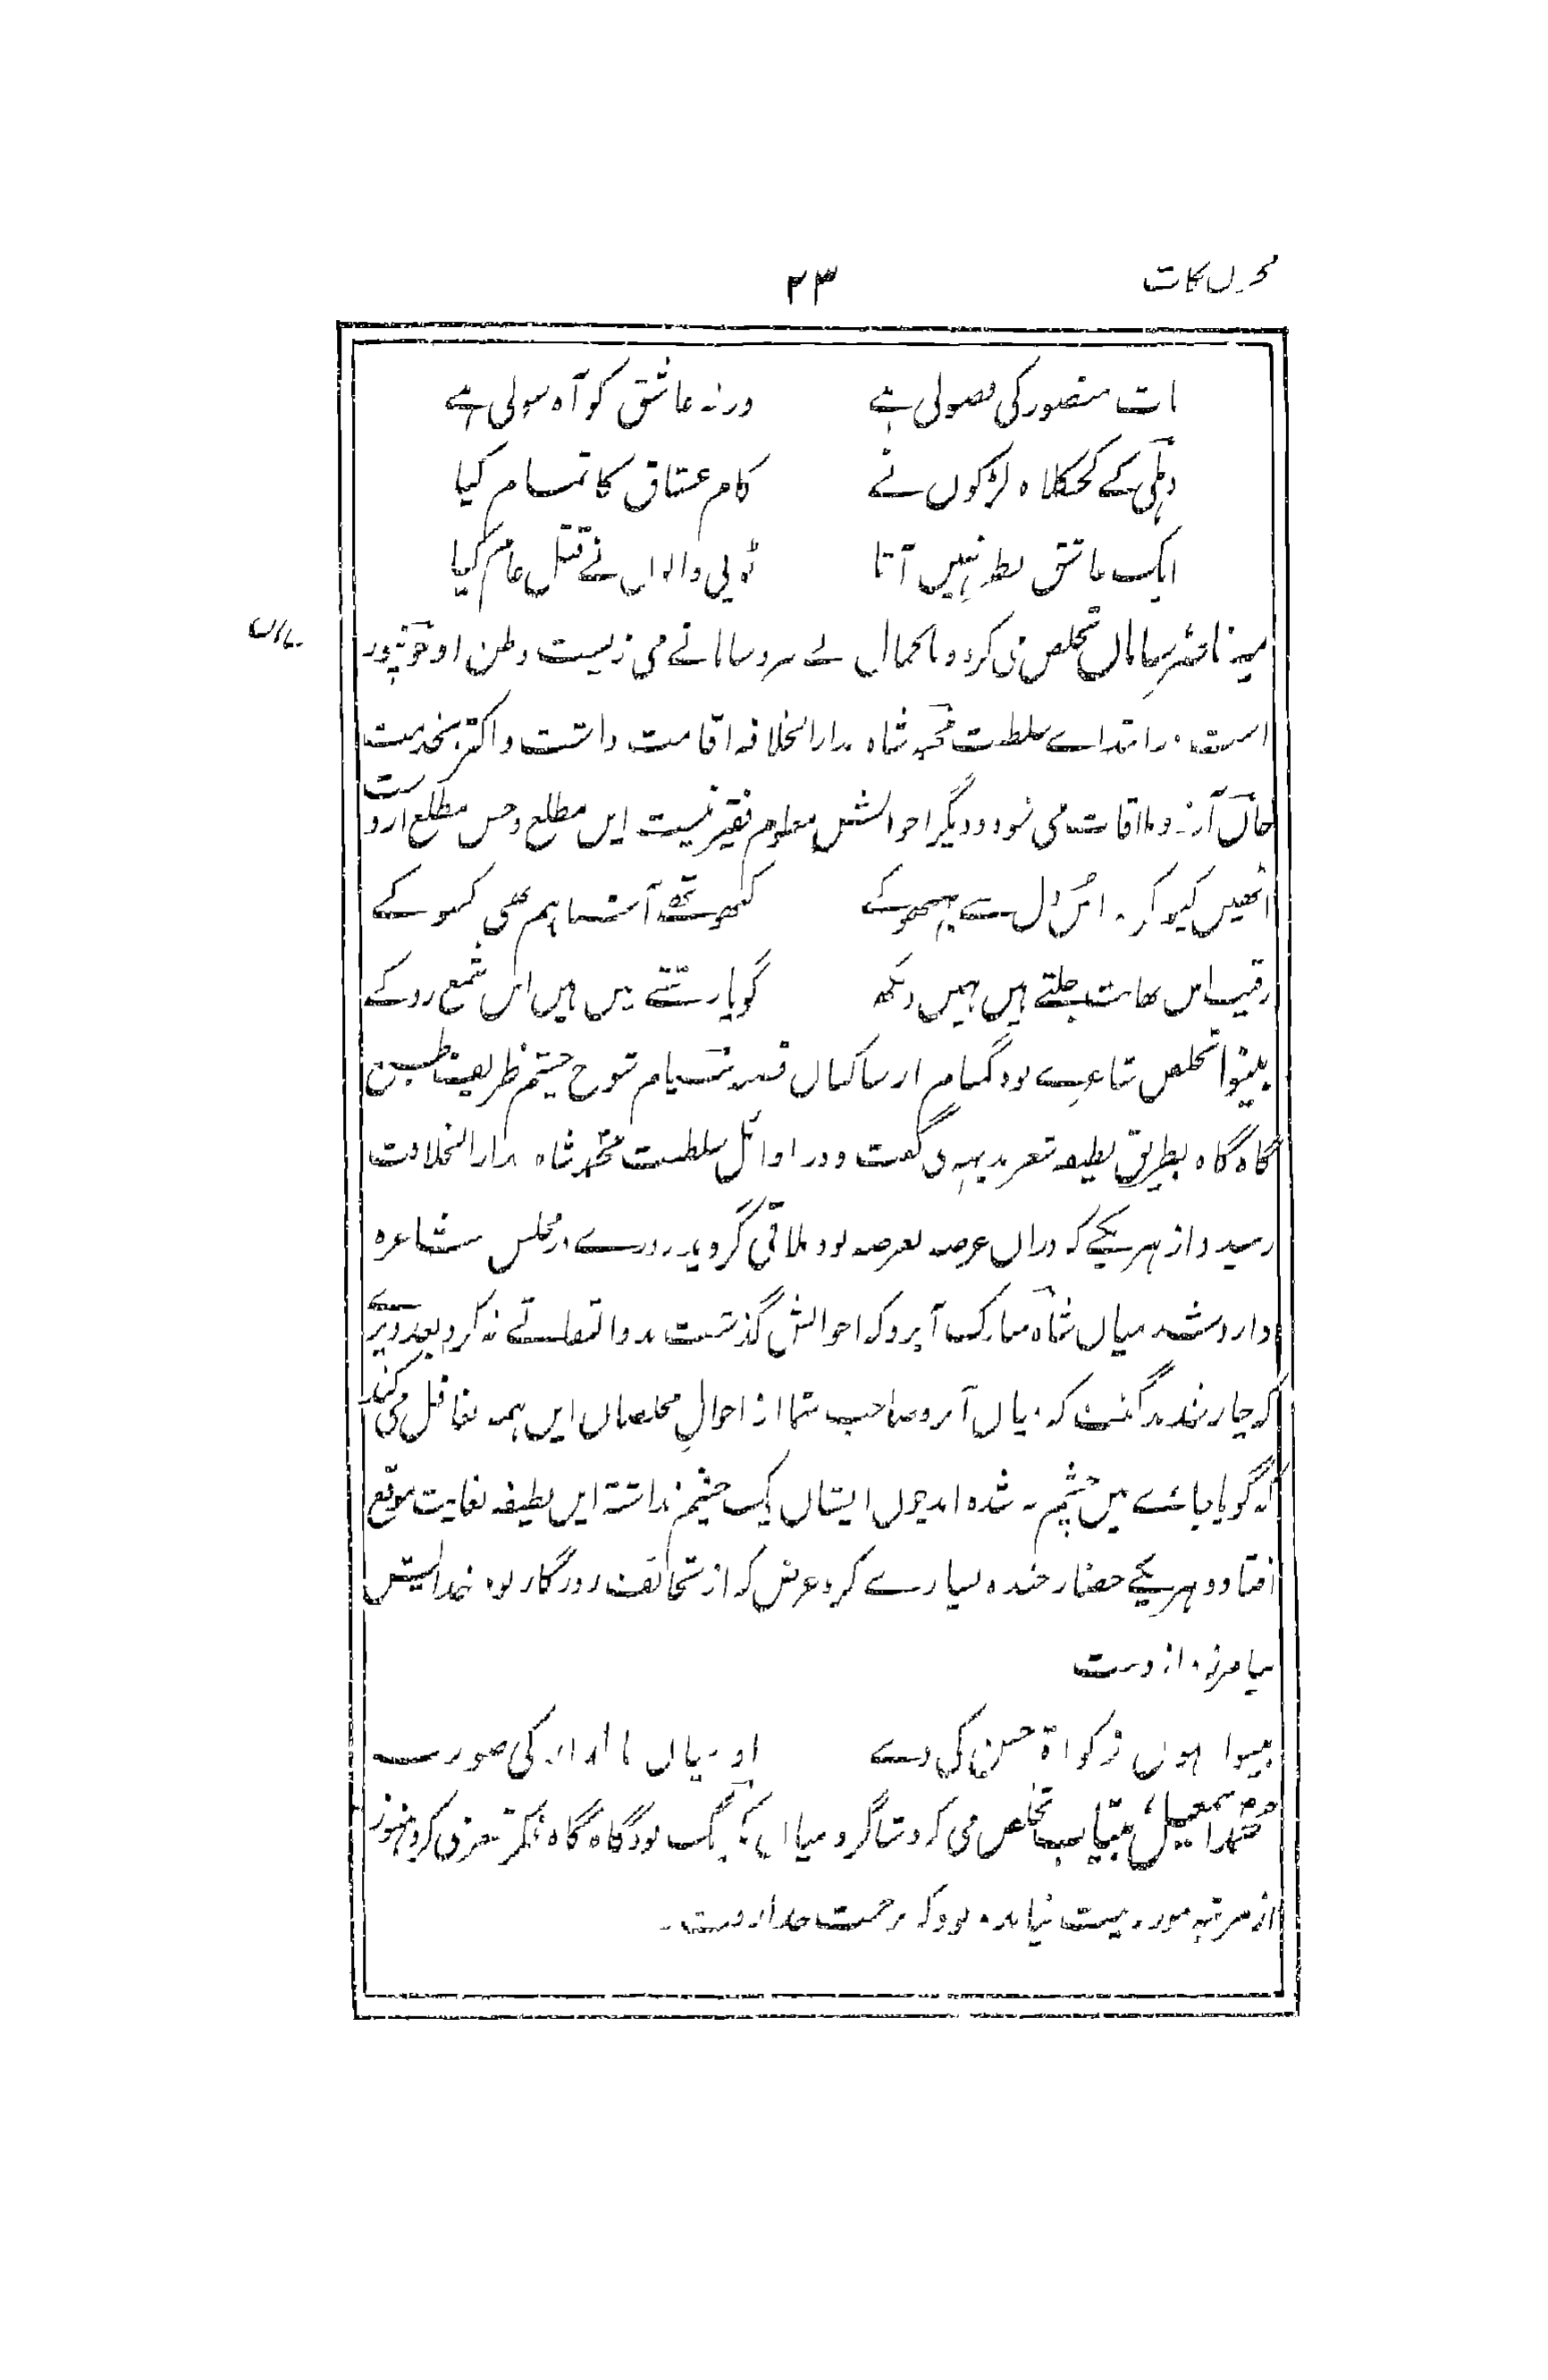 مخزن نکات ۲۳
بات منصور کی فضولی ہے ورنہ عاشق کو آہ سولی ہے
دہلی کے کجکلاہ لڑکوں نے کام عشاق کا تمام کیا
ایک عاشق نظر نہیں آتا ٹوپی والوں نے قتل عام کیا
میر ناصر ساماں تخلص می کرد و بکمال بے سر و سامانے می زیست وطن او جونپور
ساماں
است در ابتداے سلطنت محمد شاہ بدارالخلافہ اقامت داشت و اکثر بخدمت
خان آرزو ملاقات می نمود و دیگر احوالش معلوم فقیر نیست ایں مطلع و حسن مطلع ازوست
انھیں کیونکر اس دل سے بھبھوکے کبھو تھے آشنا ہم بھی کسو کے
رقیب اس بھانت جلتے ہیں ہمیں دیکھ گویا رشتے میں ہیں اس شمع رو کے
بینوا تخلص شاعرے بود گمنام از ساکنان قصبہ سنام شوخ چشم ظریف طبع
گاہ گاہ بطریق لطیفہ شعر بدیہہ می گفت و در اوائل سلطنت محمد شاہ بدارالخلافت
رسید و از ہر یکے کہ دراں عرصہ بعرصہ بود ملاقی گردید روزے در مجلس مشاعرہ
وارد شد میاں شاہ مبارک آبرو کہ احوالش گذشت بدو التفاتے نہ کرد بعد دیرے
کہ چار شدند گفت کہ میاں آبرو صاحب شما از احوالِ مخلصاں ایں ہمہ تغافل می کنند
کہ گویا جائے میں چشم نہ شدہ اند چوں ایشاں یک چشم نداشتند ایں لطیفہ بغایت موقع
افتاد و ہر یکے حضار خندہ بسیارے کرد غرض کہ از تحائف روزگار بود خدایش
بیامرزد از وست
بینوا ہوں زکواۃ حسن کی دے او میاں مالدار کی صورت
محمد اسمعیل بیتاب تخلص می کرد شاگرد میاں یکرنگ بود گاہ گاہ فکر شعر می کرد ہنوز
از مرتبہ نیامدہ بود کہ برحمت خدا رفت۔